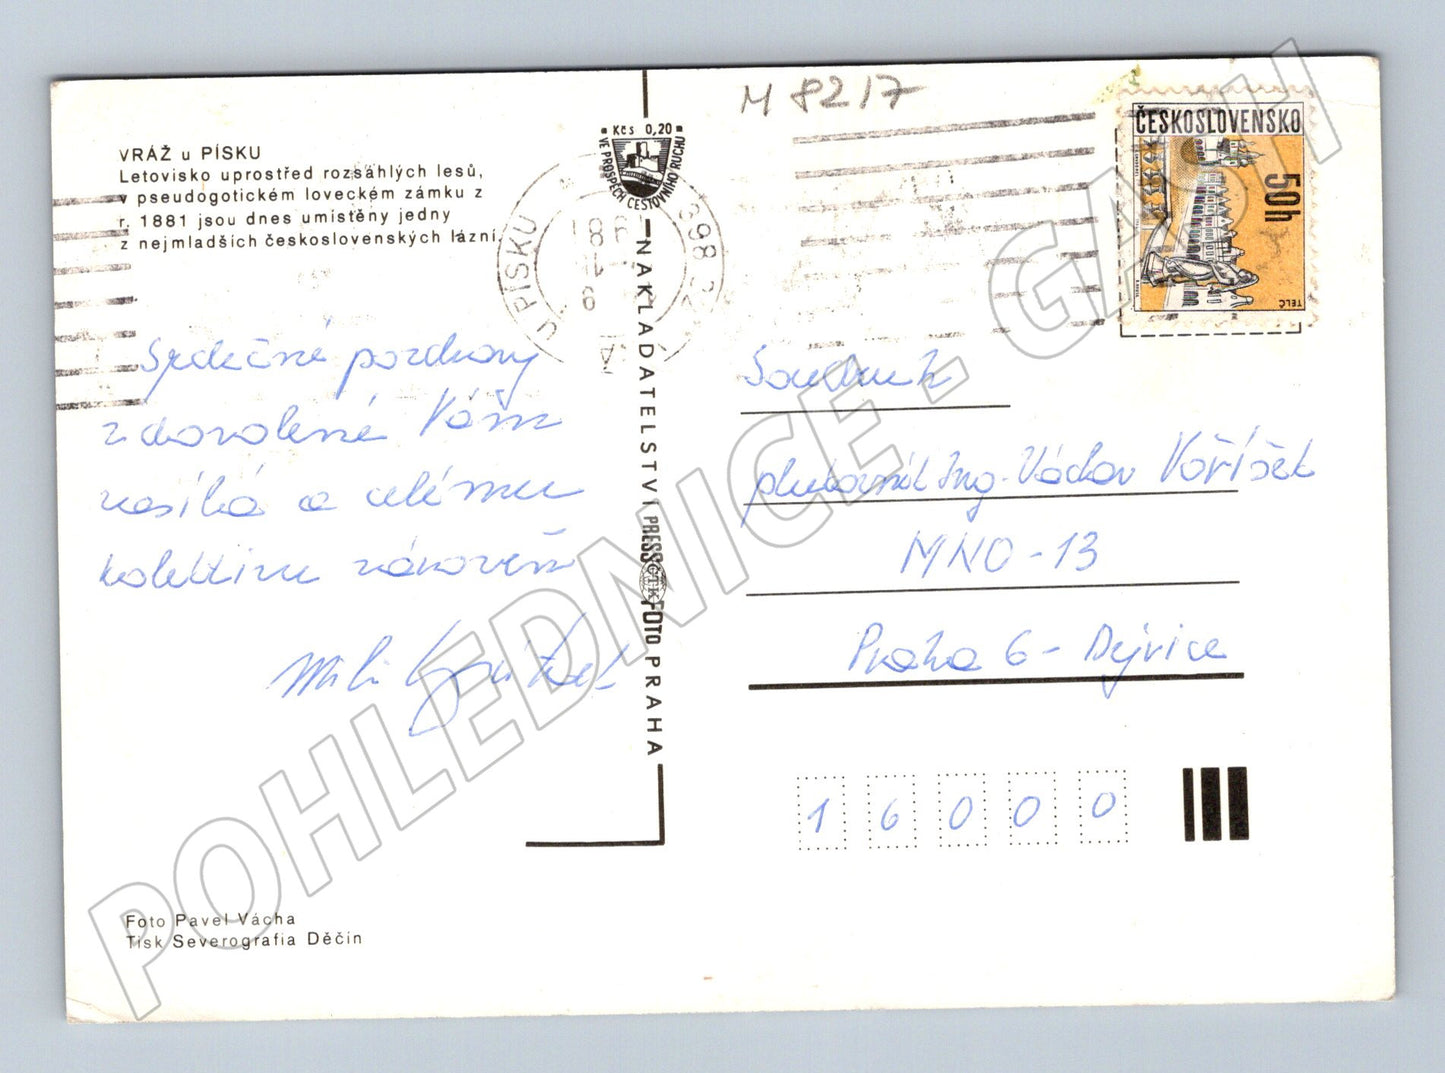 M 8217
VRÁŽ u PÍSKU
Letovisko uprostřed rozsáhlých lesů,
v pseudogotickém loveckém zámku z
r. 1881 jsou dnes umístěny jedny
z nejmladších československých lázní.
Kčs 0,20
VE PROSPĚCH CESTOVNÍHO RUCHU
U PÍSKU
398
ČESKOSLOVENSKO
50h
TELČ
Srdečné pozdravy
z dovolené Vám
zasílá a celému
kolektivu zároveň
NAKLADATELSTVÍ PRESSFOTO PRAHA
ČTK
Soudruh
plukovník Ing. Václav Voříšek
MNO-13
Praha 6 - Dejvice
16000
Foto Pavel Vácha
Tisk Severografia Děčín
POHLEDNICE - GASH